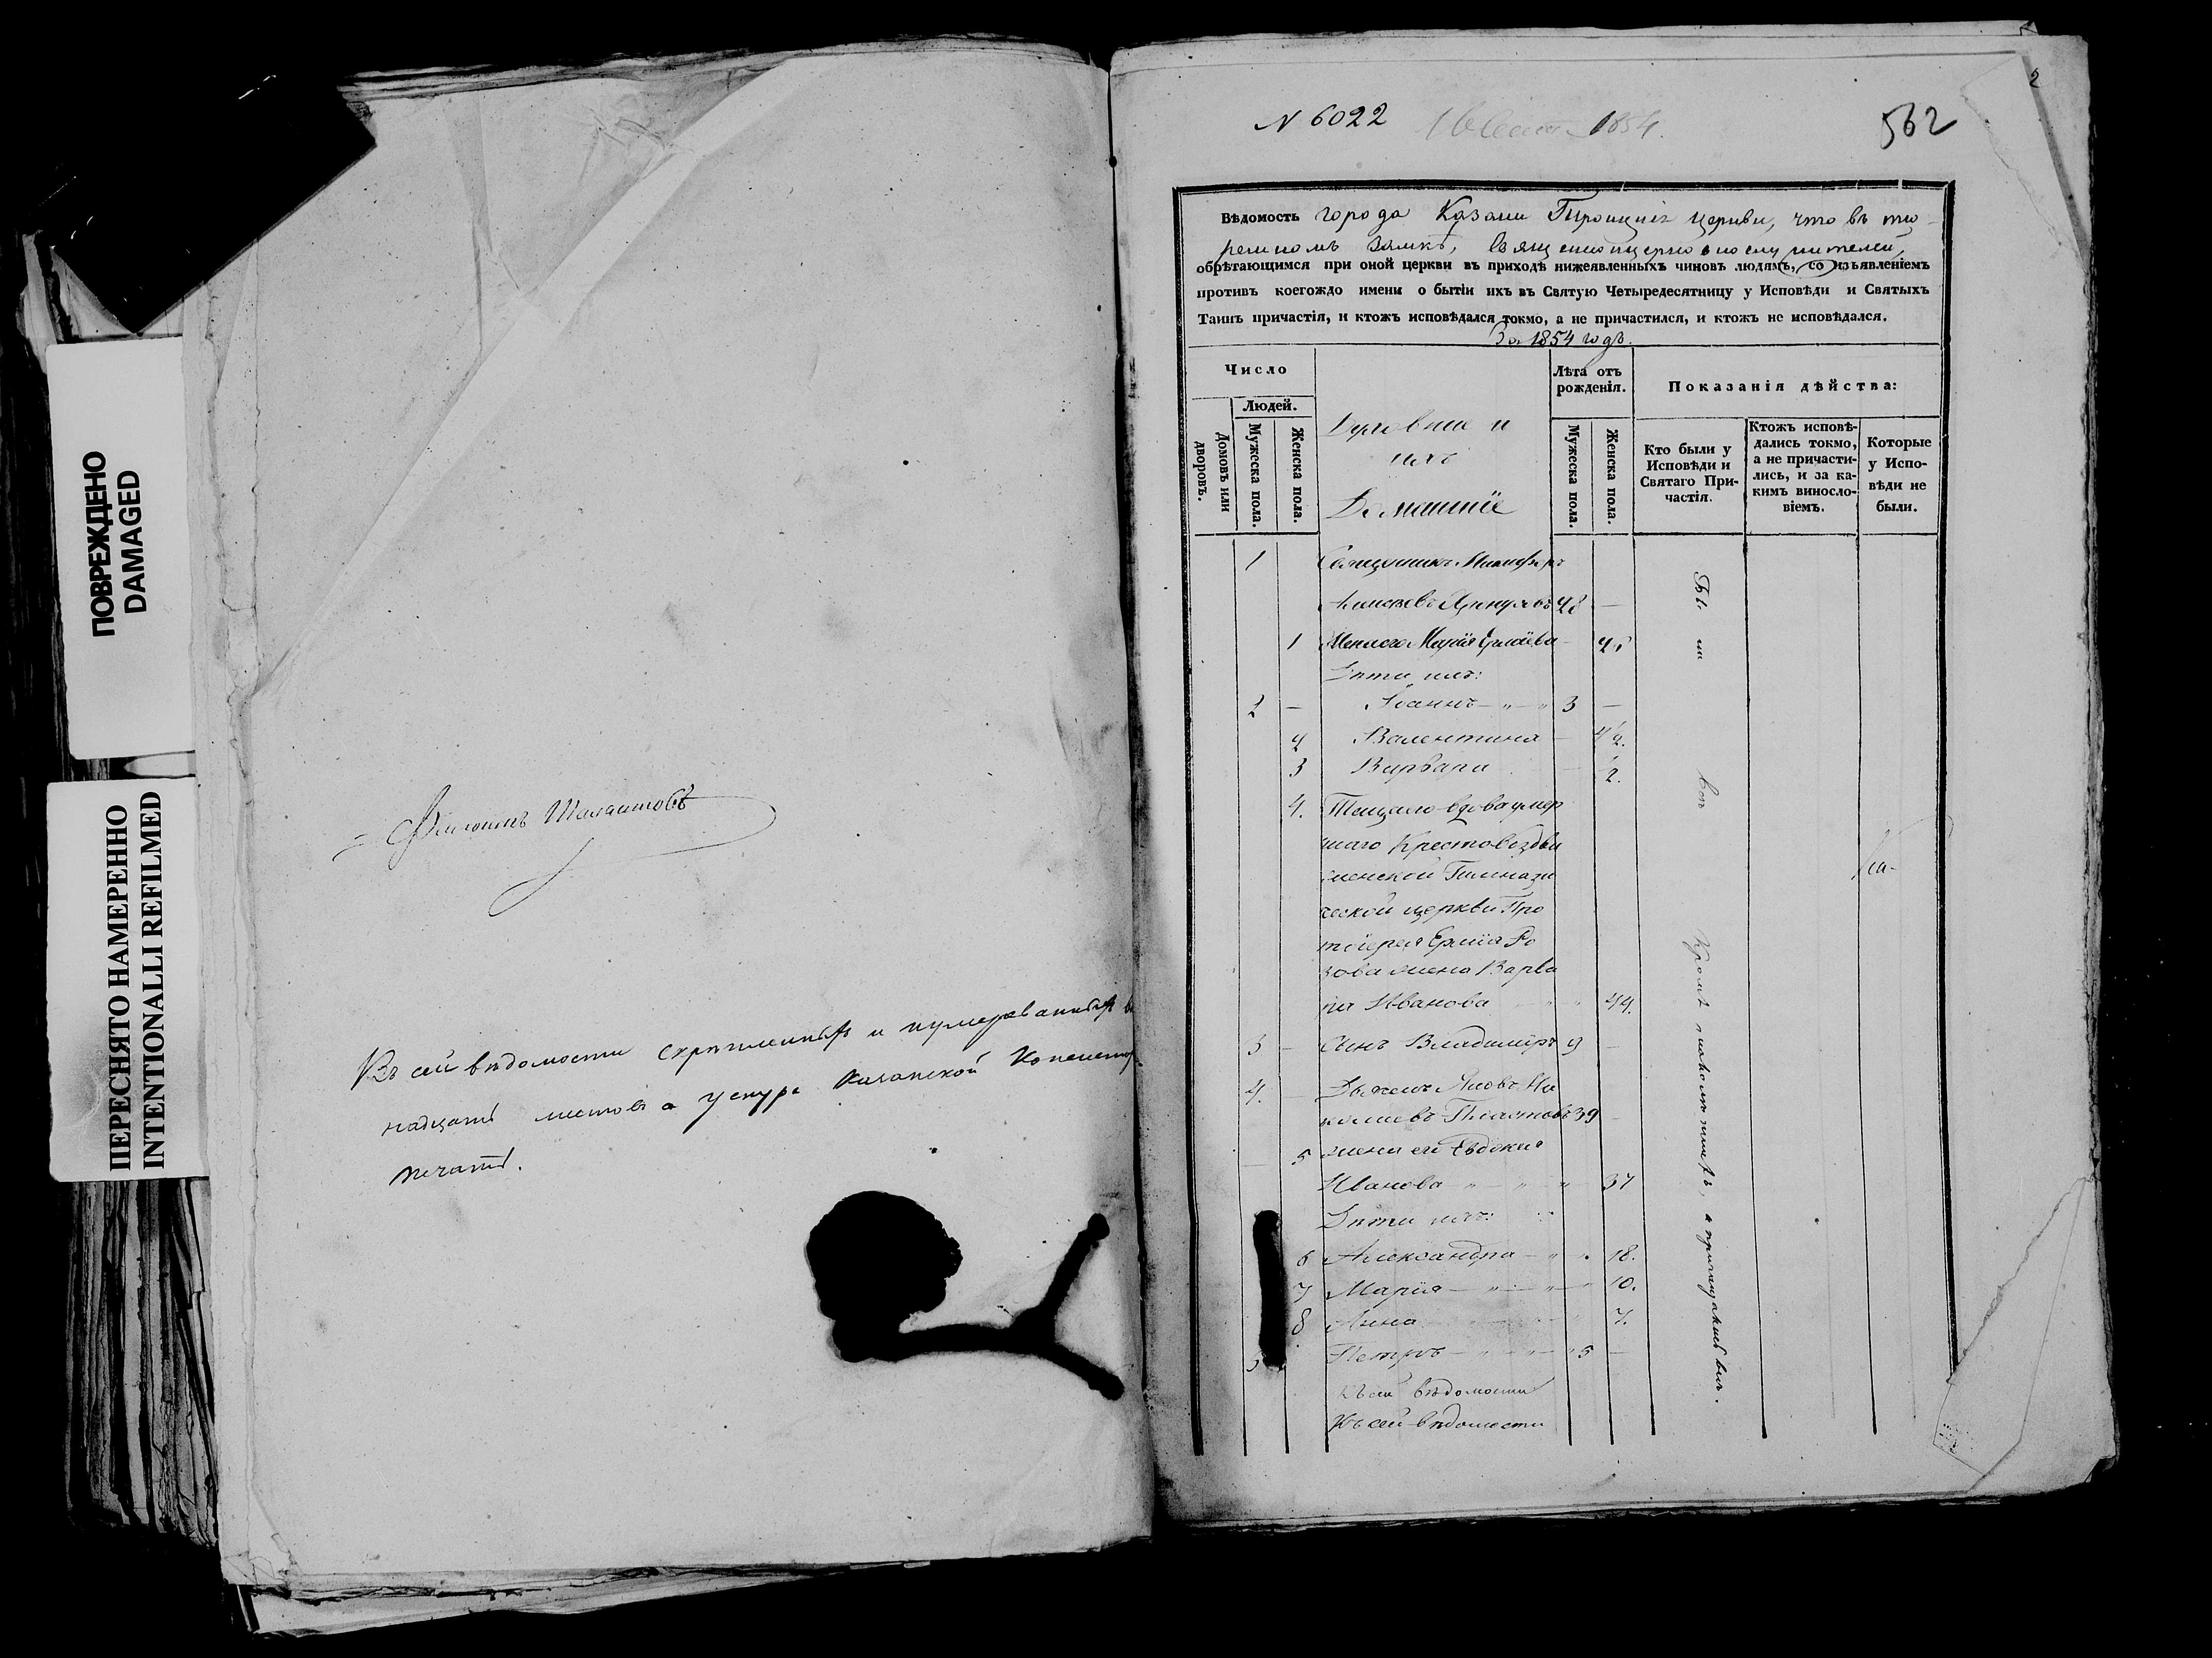 ПОВРЕЖДЕНО
DAMAGED
ПЕРЕСНЯТО НАМЕРЕННО
INTENTIONALLI REFILMED
Въ сей вѣдомости скрѣпленныхъ и нумерованныхъ
надцать листовъ а у снура Казанской Консистор
печать.
N 6022 1854.
562
2
Вѣдомость города Казани Троицкія церкви, что въ тю-
ремномъ замкѣ, священноцерковнослужителей,
обрѣтающимся при оной церкви въ приходѣ нижеявленныхъ чиновъ людямъ, со изъявленіемъ
противъ коегождо имени о бытіи ихъ въ Святую Четыредесятницу у Исповѣди и Святыхъ
Таинъ причастія, и ктожъ исповѣдался токмо, а не причастился, и ктожъ не исповѣдался.
За 1854 годъ.
Число
Людей.
Домовъ или дворовъ.
Мужеска пола.
Женска пола.
Духовные и
ихъ
Домашніе
Лѣта отъ
рожденія.
Мужеска пола.
Женска пола.
Показанія дѣйства:
Кто были у
Исповѣди и
Святаго При-
частія.
Ктожъ исповѣ-
дались токмо,
а не причасти-
лись, и за ка-
кимъ виносло-
віемъ.
Которые
у Испо-
вѣди не
были.
1 Священникъ Никифоръ
Алексѣевъ 28 —
1 Жена его Марія Ерміева —
Дѣти ихъ:
2 — Іоаннъ — " — " 3 —
2 Валентина —
3 Варвара —
4. Теща его вдова умер
шаго Крестовоздви
женской Гимнази
ческой церкви Про
тоіерея Ермія Ро
зова жена Варва
ра Иванова — " 44.
3 — Сынъ Владиміръ 9 —
4. — Дьяконъ Яковъ Ни
колаевъ Пластовъ 39 —
5 жена его Евдокія
Иванова — " — " — " 37
Дѣти ихъ:
6 Александра — " — " 18.
7 Марія — " — " — " 10.
8 Анна 7.
5 Петръ — " — " — " 5 —
Къ сей вѣдомости
Къ сей вѣдомости
Бы ли всѣ